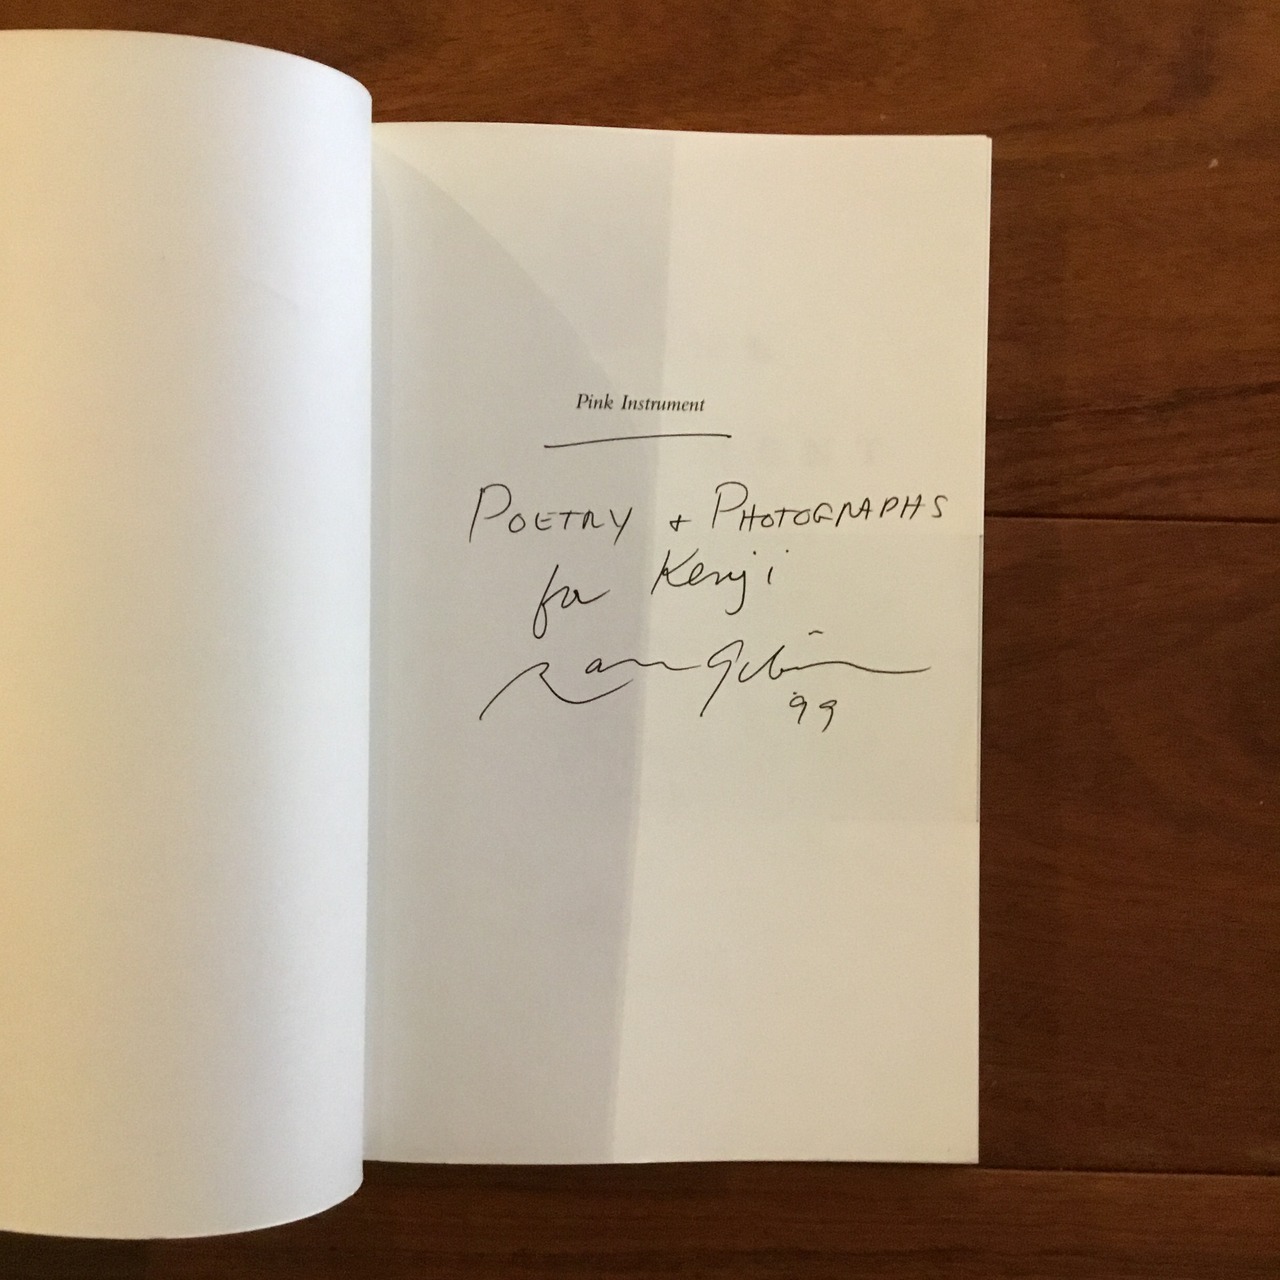 Pink Instrument
POETRY + PHOTOGRAPHS
for Kenji
'99